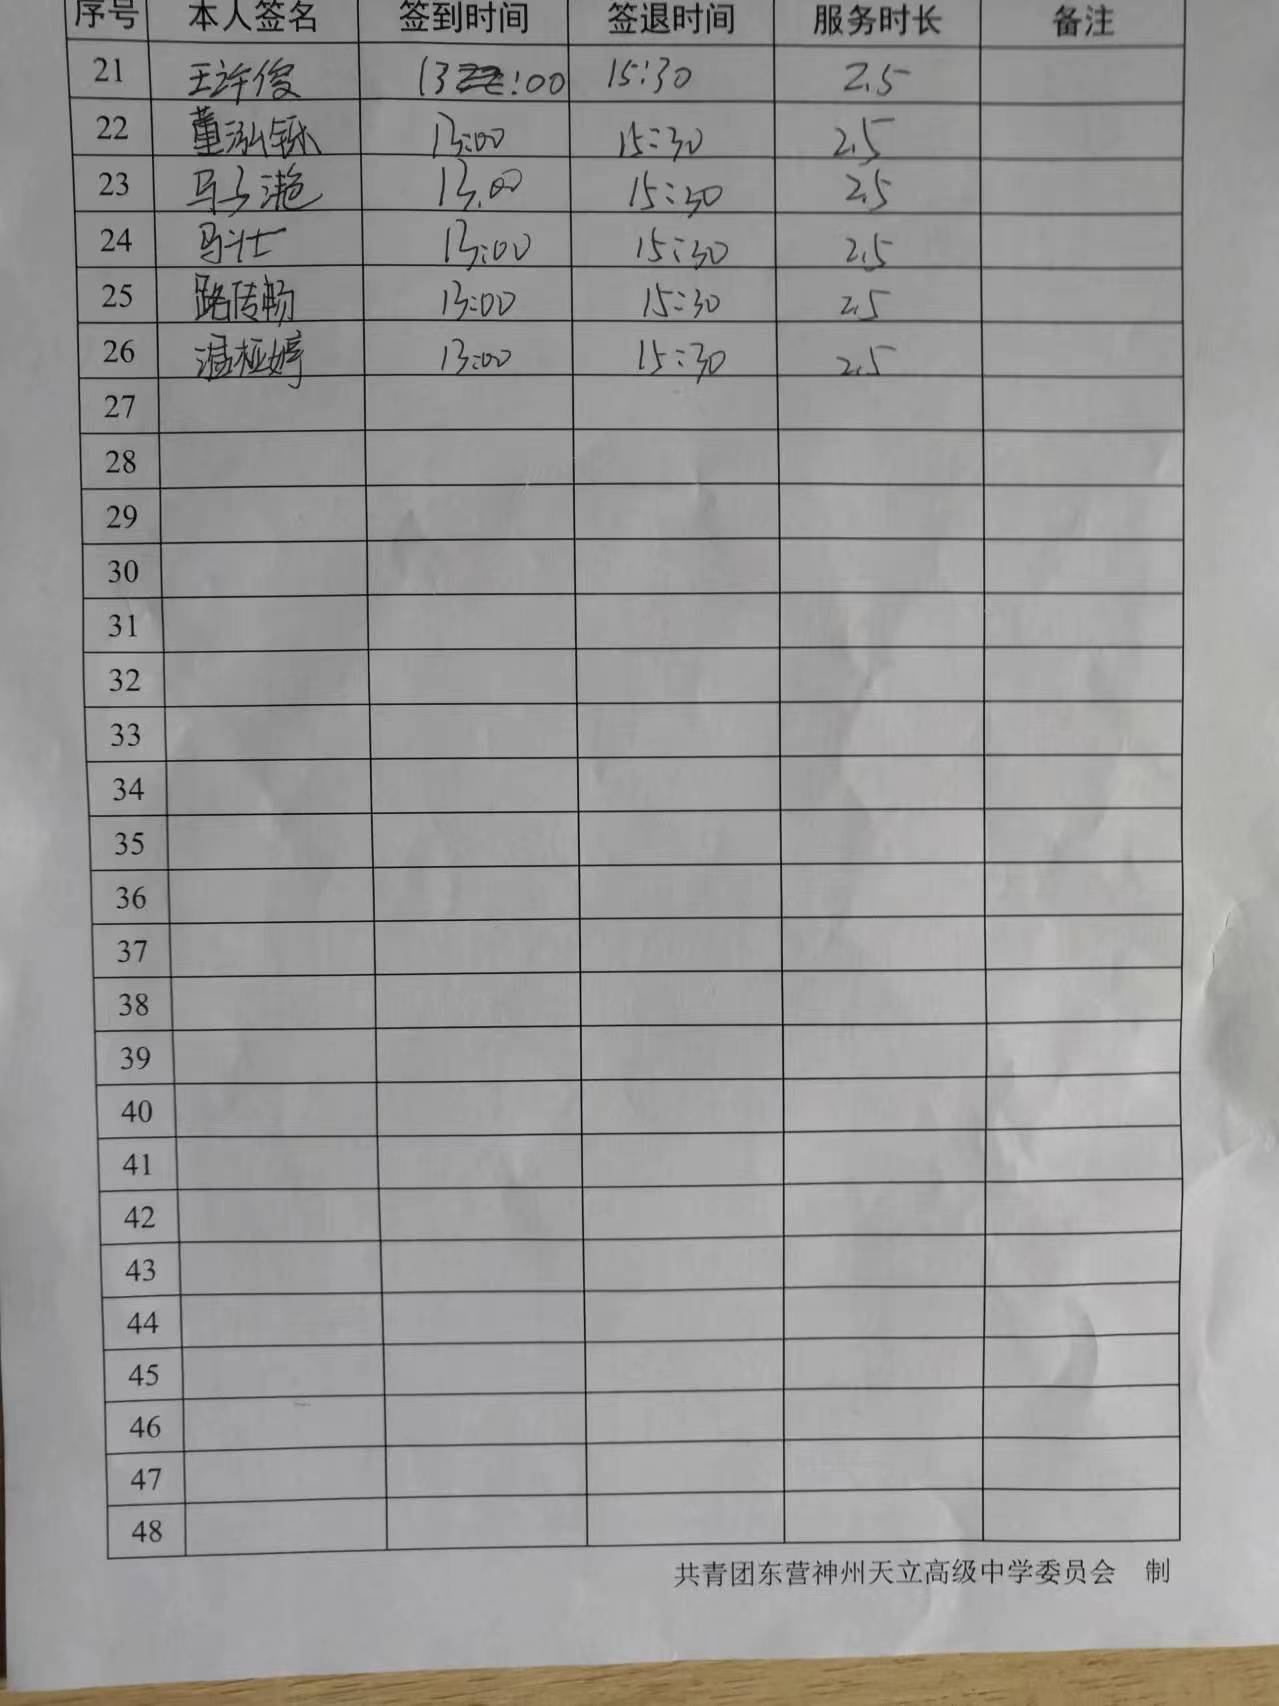 序号 本人签名 签到时间 签退时间 服务时长 备注
21 王许俊 13:00 15:30 2.5
22 董泓铄 13:00 15:30 2.5
23 马子滟 13.00 15:30 2.5
24 马壮 13:00 15:30 2.5
25 路传畅 13:00 15:30 2.5
26 温桠婷 13:00 15:30 2.5
27
28
29
30
31
32
33
34
35
36
37
38
39
40
41
42
43
44
45
46
47
48
共青团东营神州天立高级中学委员会 制